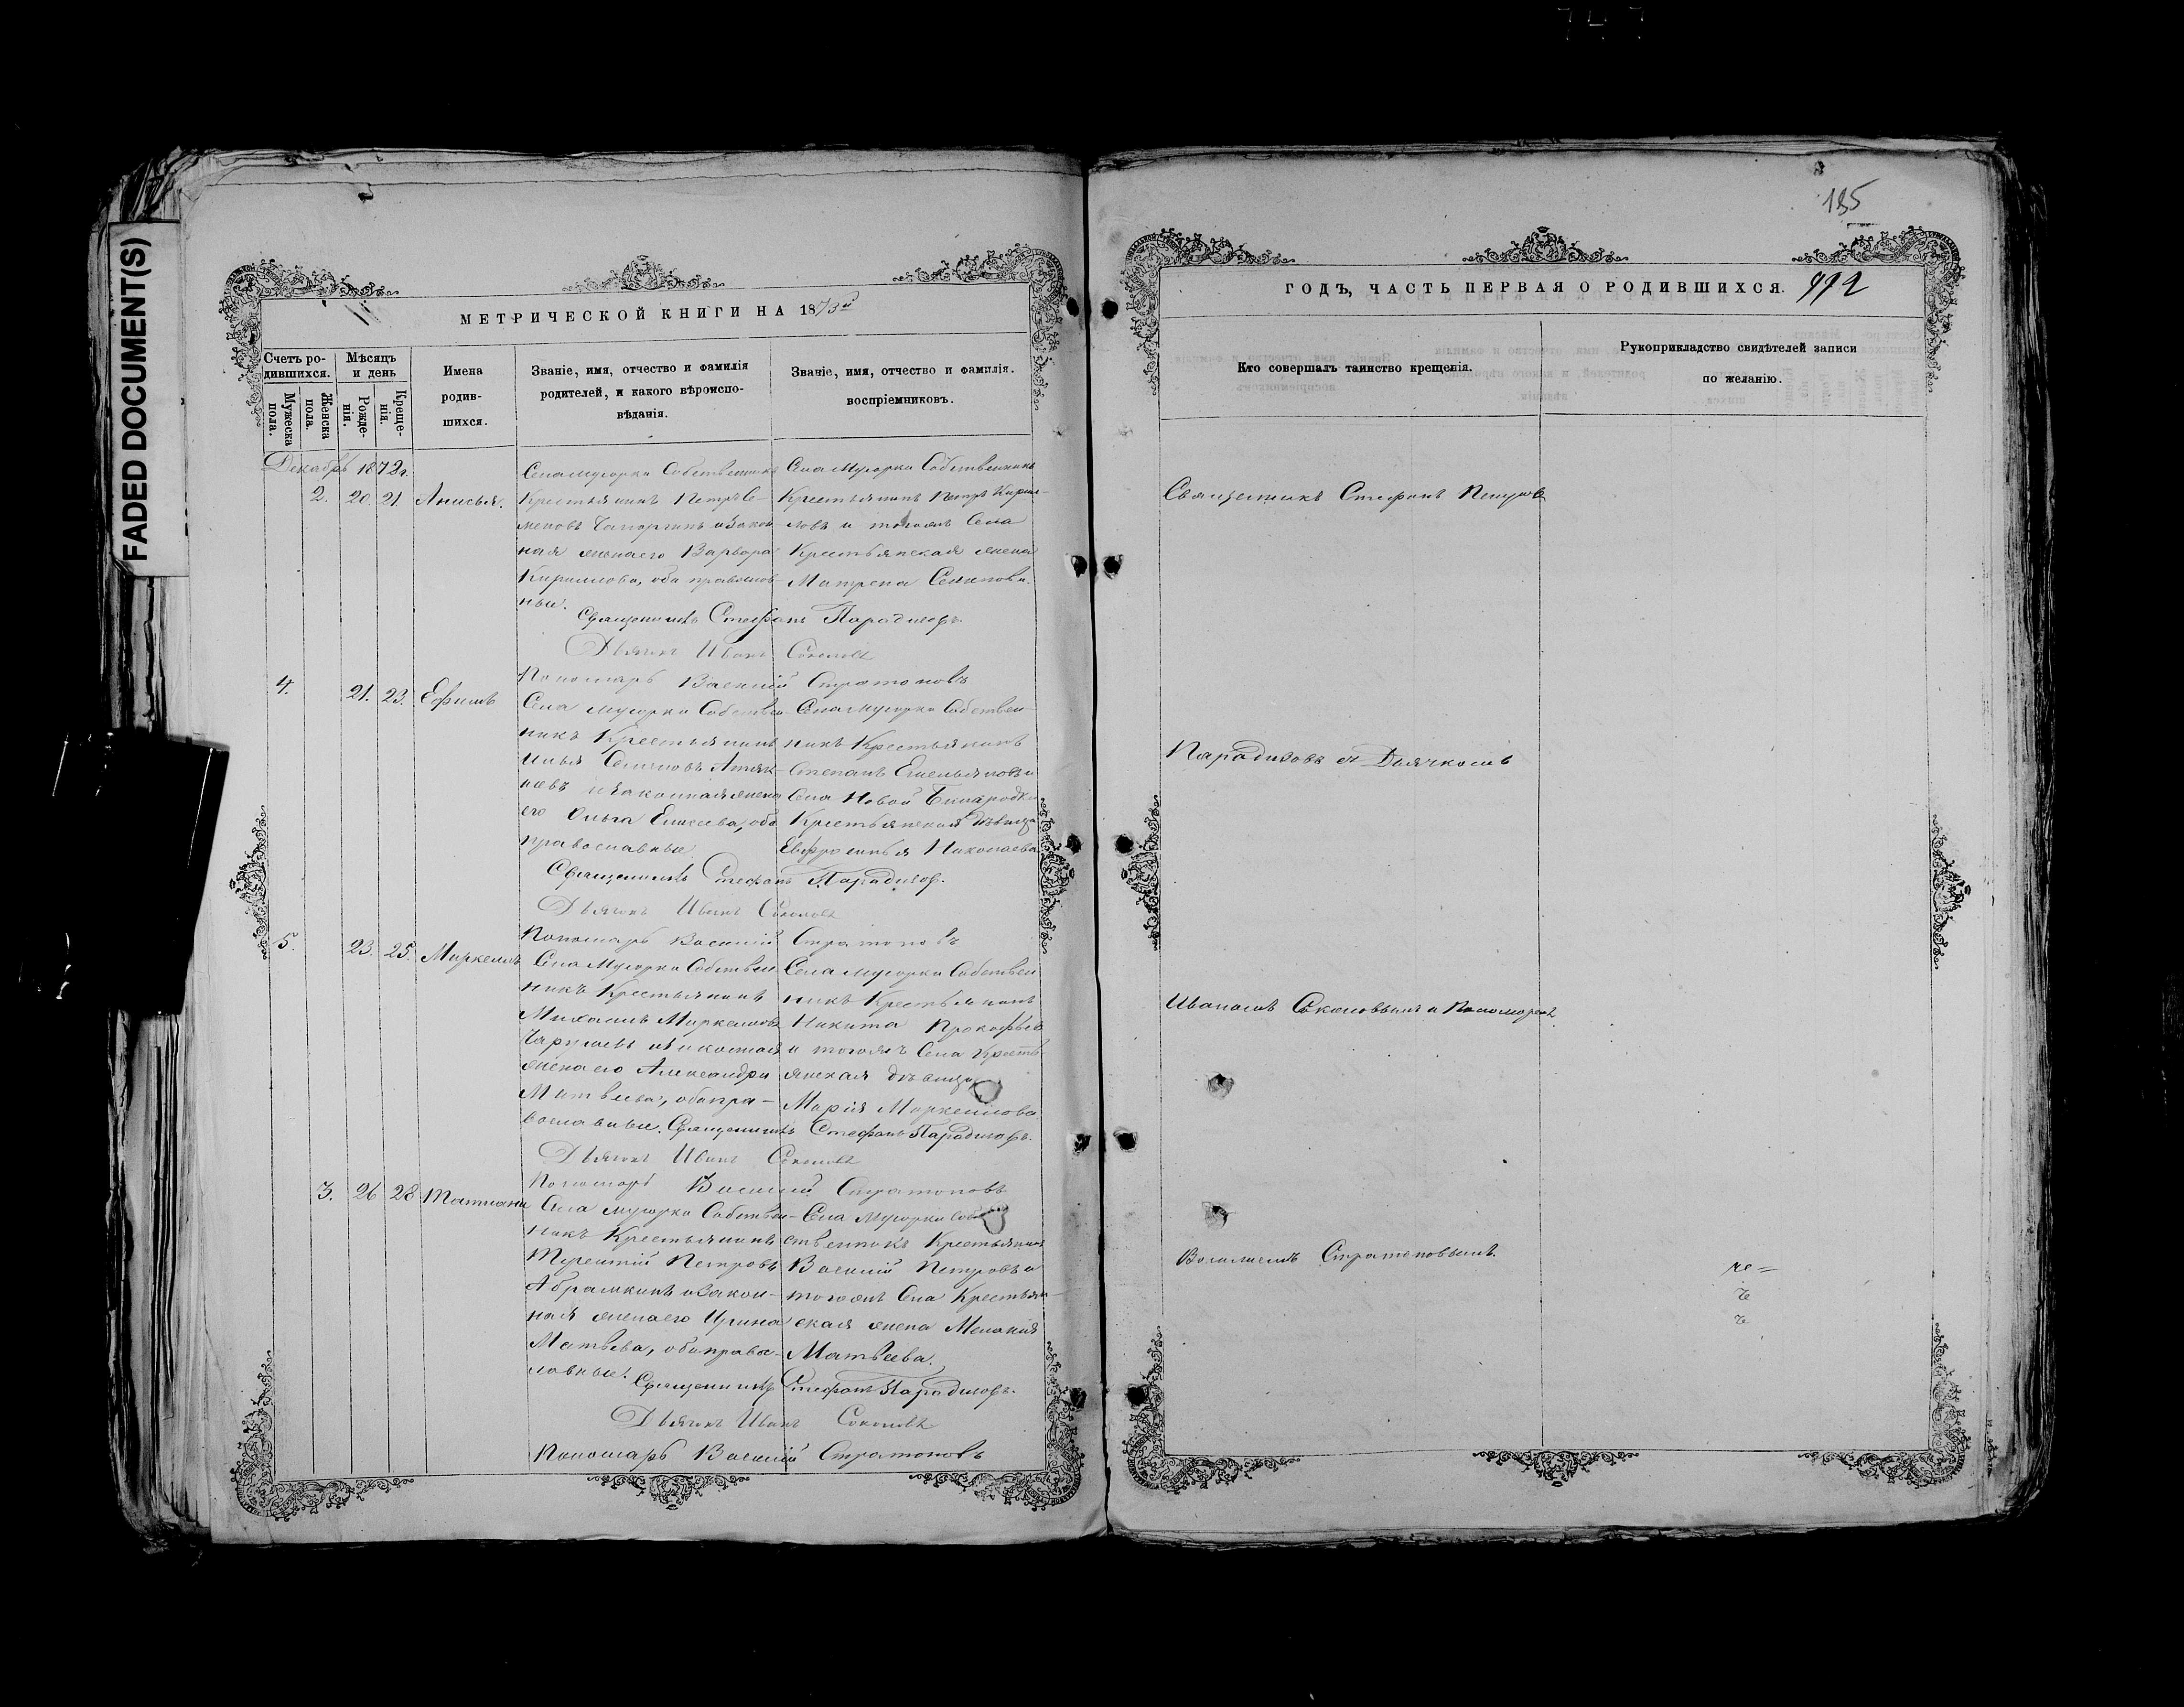 FADED DOCUMENT(S)
185
МЕТРИЧЕСКОЙ КНИГИ НА 1873й
Счетъ ро-
дившихся.
Мѣсяцъ
и день
Мужеска
пола.
Женска
пола.
Рожде-
нія.
Креще-
нія.
Имена
родив-
шихся.
Званіе, имя, отчество и фамилія
родителей, и какого вѣроиспо-
вѣданія.
Званіе, имя, отчество и фамилія.
воспріемниковъ.
Декабрь 1872г.
2. 20. 21. Анисья.
Села Мусорки Собственникъ
Крестьянинъ Петръ Се-
меновъ и закон
ная жена его Варвара
Кирилова, оба православ
ные.
Села Мусорки Собственникъ
Крестьянинъ Петръ Кирил-
ловъ и тогожъ Села
Крестьянская жена
Матрена Семенова.
Священникъ Стефанъ Парадизовъ.
Дьячокъ Иванъ Соколовъ
Пономарь Василій Стратоновъ
4. 21. 23. Ефимъ
Села Мусорки Собствен-
никъ Крестьянинъ
Илья
и законная жена
его Ольга Елисеева, оба
православные
Села Мусорки Собствен-
никъ Крестьянинъ
Степанъ Емельяновъ и
Села Новой Бинарадки
Крестьянская дѣвица
Евфросинья Николаева
Священникъ Стефанъ Парадизовъ.
Дьячокъ Иванъ Соколовъ
Пономарь Василій Стратоновъ
5. 23. 25. Маркеллъ
Села Мусорки Собствен
никъ Крестьянинъ
Михаилъ Маркеловъ
и законная
жена его Александра
Матвеева, оба пра-
вославные.
Села Мусорки Собствен
никъ Крестьянинъ
Никита Прокофьев
и тогожъ Села Кресть
янская дѣвица
Марія Маркеллова
Священникъ Стефанъ Парадизовъ.
Дьячокъ Иванъ Соколовъ
Пономарь Василій Стратоновъ
3. 26 28 Татиана
Села Мусорки Собствен-
никъ Крестьянинъ
Терентій Петровъ
Абрамкинъ и закон-
ная жена его Ирина
Матвеева, оба право-
славные.
Села Мусорки Соб
ственникъ Крестьянинъ
Василій Петровъ и
тогожъ Села Крестьян-
ская жена Меланія
Матвеева.
Священникъ Стефанъ Парадизовъ.
Дьячокъ Иванъ Соколовъ
Пономарь Василій Стратоновъ
ГОДЪ, ЧАСТЬ ПЕРВАЯ О РОДИВШИХСЯ. 992
Кто совершалъ таинство крещенія.
Рукоприкладство свидѣтелей записи
по желанію.
Священникъ Стефанъ Петровъ
Парадизовъ съ Дьячкомъ
Иваномъ Соколовымъ и Пономаремъ
Василіемъ Стратоновымъ.